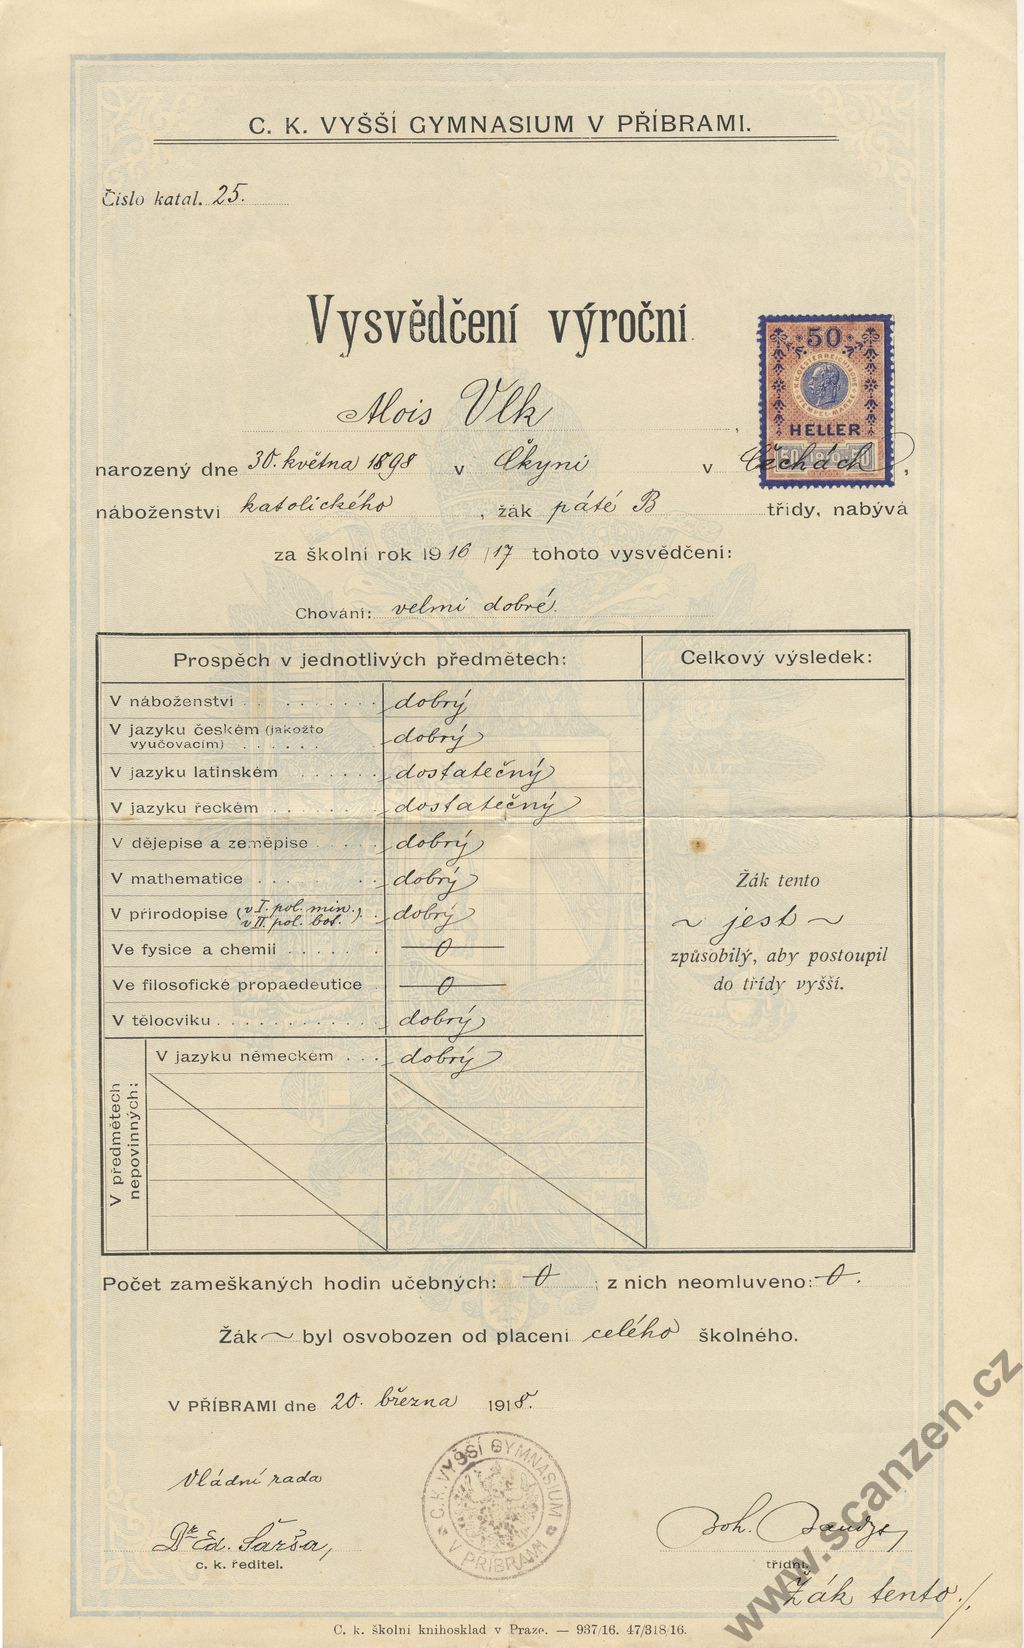 C. K. VYŠŠÍ GYMNASIUM V PŘÍBRAMI.
Číslo katal. 25.
Vysvědčení výroční
50
K.K. OESTERREICHISCHE STEMPEL-MARKE
HELLER
50 1910 50
Alois Vlk,
narozený dne 30. května 1898 v Čkyni v Čechách,
náboženství katolického, žák páté B třídy, nabývá
za školní rok 1916/17 tohoto vysvědčení:
Chování: velmi dobré.
Prospěch v jednotlivých předmětech: Celkový výsledek:
V náboženství dobrý
V jazyku českém (jakožto
vyučovacím) dobrý
V jazyku latinském dostatečný
V jazyku řeckém dostatečný
V dějepise a zeměpise dobrý
V mathematice dobrý
V přírodopise (v I. pol. min.
v II. pol. bot.) dobrý
Ve fysice a chemii 0
Ve filosofické propaedeutice 0
V tělocviku dobrý
V předmětech
nepovinných:
V jazyku německém dobrý
Žák tento
~ jest ~
způsobilý, aby postoupil
do třídy vyšší.
Počet zameškaných hodin učebných: 0; z nich neomluveno: 0.
Žák ~ byl osvobozen od placení celého školného.
V PŘÍBRAMI dne 20. března 1918.
C. K. VYŠŠÍ GYMNASIUM
V PŘÍBRAMI
Vládní rada
Dr Ed. Šarša,
c. k. ředitel.
Boh.
třídní.
Žák tento ./.
C. k. školní knihosklad v Praze. — 937/16. 47/318/16.
www.scanzen.cz